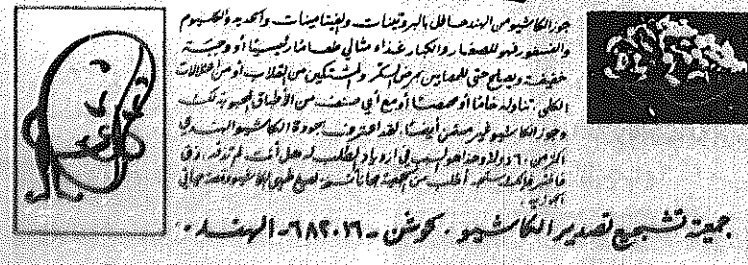 جوز الكاشيو من الهند حافل بالبروتينات والفيتامينات والحديد والكلسيوم
والفسفور فهو للصغار والكبار غذاء مثالي طعاما رئيسيا أو وجبة
خفيفة ويصلح حتى للمصابين بمرض السكر والمشتكين من القلب أو من اختلالات
الكلى. تناوله خاما أو محمصا أو مع أي صنف من الأطباق المحبوبة لك
وجوز الكاشيو غير مسمن أيضا. لقد اعترف بجودة الكاشيو الهندي
أكثر من ٦٠ دولة وهذا هو السبب في ازدياد الطلب له هل أنت لم تذقه
أطلب من الجمعية مجانا
جمعية تشجيع تصدير الكاشيو. كوشن - ٦٨٢٠١٦ - الهند.